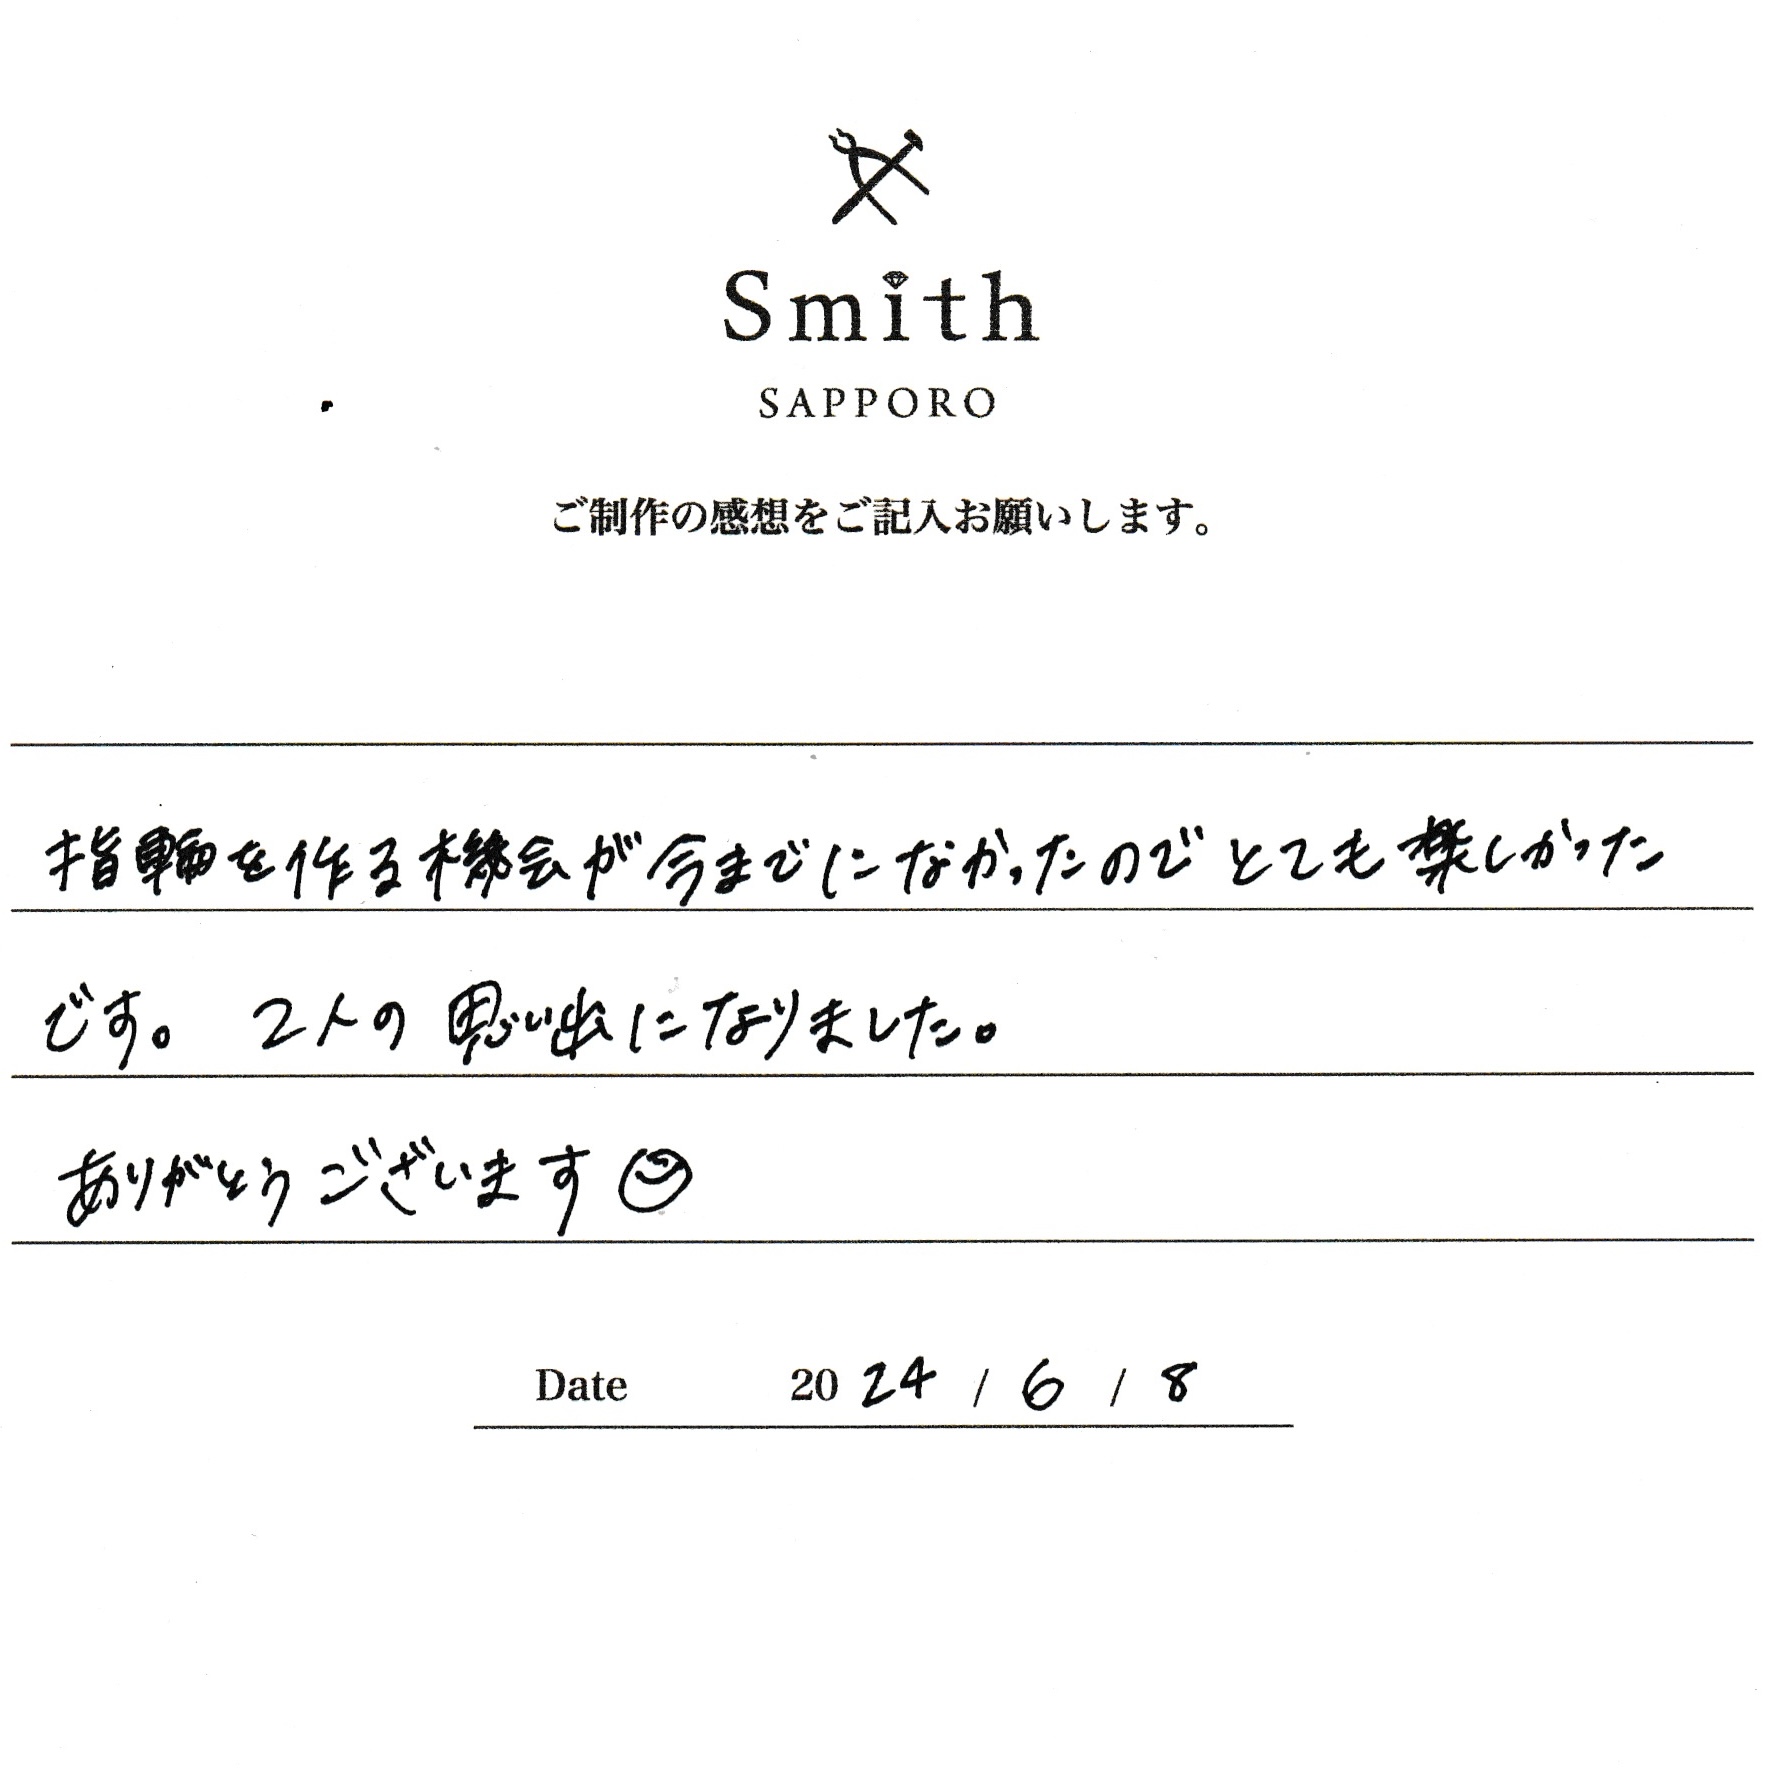 Smith
SAPPORO
ご制作の感想をご記入お願いします。
指輪を作る機会が今までになかったのでとても楽しかった
です。 2人の思い出になりました。
ありがとうございます
Date 2024 / 6 / 8